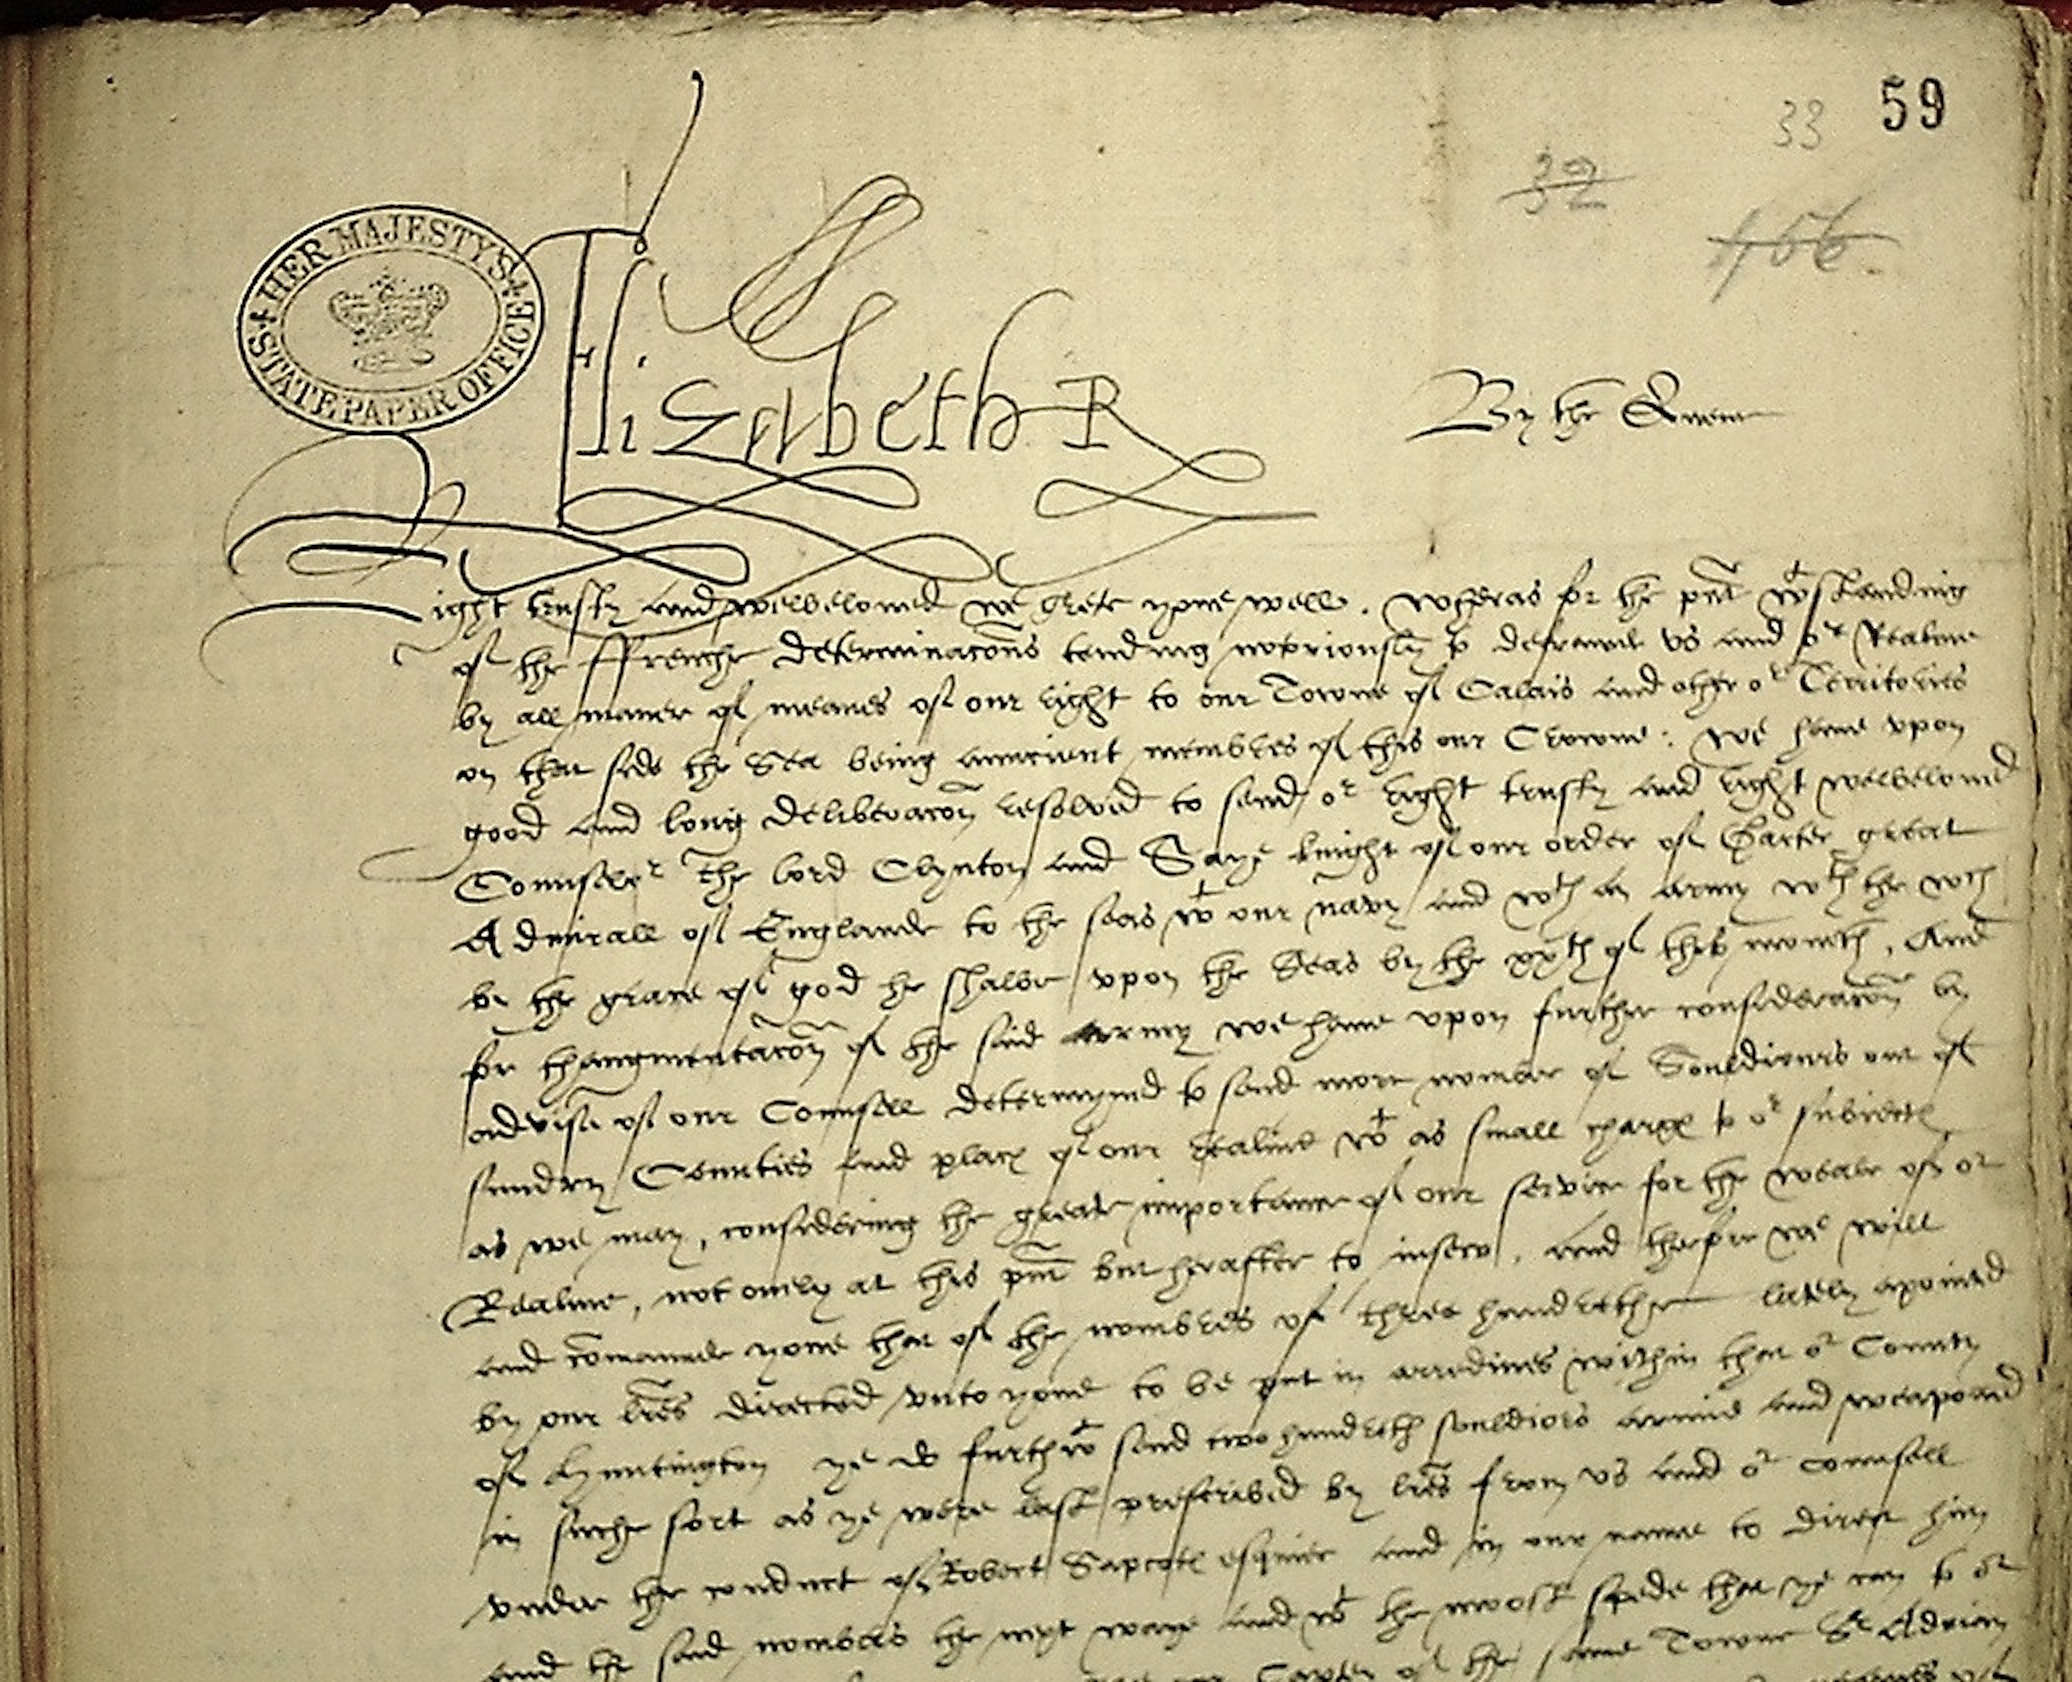 59
33
32
HER MAJESTY'S STATE PAPER OFFICE
Elizabeth R
By the Quene
Right trusty and welbeloved we grete youe well. Wheras for the pñt wtstanding
of the ffrenche determinacõns tending notoriously to defraude vs and or Realme
by all maner of meanes of our right to our Towne of Calais and other or Territories
on that side the Sea being auncient membres of this our Crowne: We haue vpon
good and long deliberacõn resolved to send or right trusty and right welbeloued
Counselor The lord Clynton and Saye knight of our order of Garter great
Admirall of Englande to the seas wt our navy and wth an army wth the wch
by the grace of god he shalbe vpon the Seas by the xxth of this month. And
for thaugmentacõn of the said army we haue vpon further consideracõn by
advise of our Counsell determyned to send more nomber of Souldiours out of
sundry Counties and places of our realme wt as small charge to or subiectes
as we may, considering the greate importance of our service for the weale of or
Realme, not onely at this pñt but herafter to insew. and therfor we will
and cõmaunde youe that of the nombres of three hundrethe lately apointed
by our lrẽs directed vnto youe to be put in aredines within that or County
of Huntington ye do furthwt send two hundreth souldiors armed and weaponed
in suche sort as ye were last prescribed by lrẽs from vs and or counsell
vnder the conduct of Robert Sapcote esquier and in our name to direct him
and the said nombres the next waye and wt the most spede that ye can to or
of the same Towne Sr Adrian